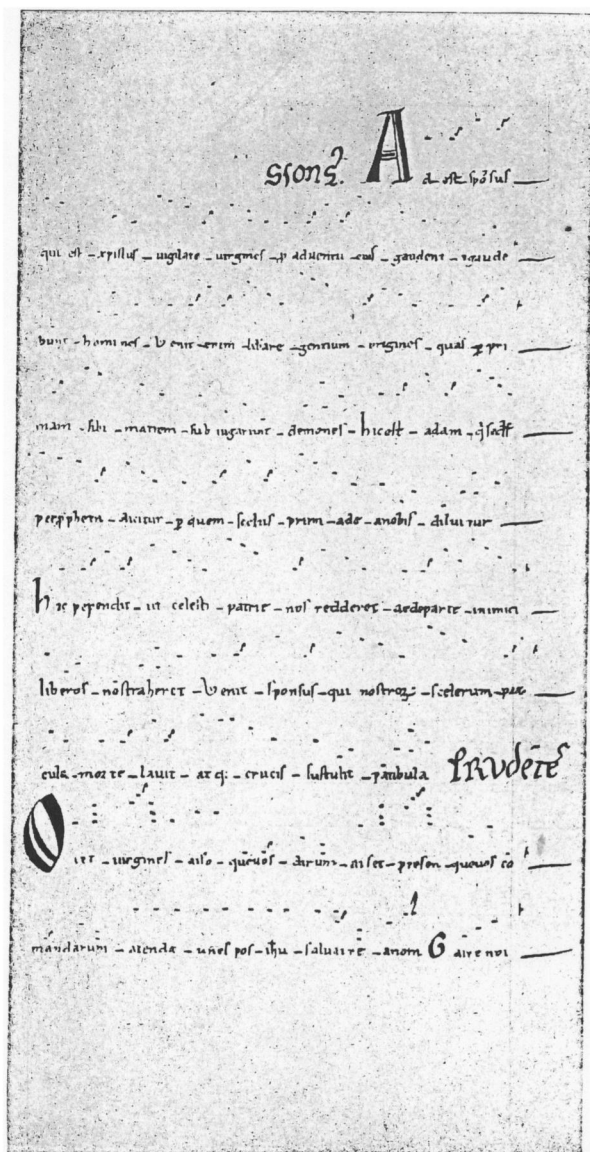 SSONS. A d est sposus
qui est _ xpistus _ uigilate _ uirgines _ p aduentu _ eius _ gaudent _ & gaude
bunt _ homines _ Venit _ enim _ liberare _ gentium _ origines _ quas _ p pri
mam _ sibi _ matrem _ sub iugarunt _ demones _ hic est _ adam _ q secds
per ppheta _ dicitur _ p quem _ scelus _ primi _ ade _ anobis _ diluitur
hic pependit _ ut celesti _ patrie _ nos redderet _ ac de parte _ inimici
liberos _ nos traheret _ Venit _ sponsus _ qui nostrorum _ scelerum _ pia
cula _ morte _ lauit _ atq: _ crucis _ sustulit _ patibula PRVdETES
O iet _ uirgines _ aiso _ que uos _ dirum _ aiset _ presen _ que uos co
mandarum _ atendet _ un espos _ ihu _ saluaire _ anom G aire noi